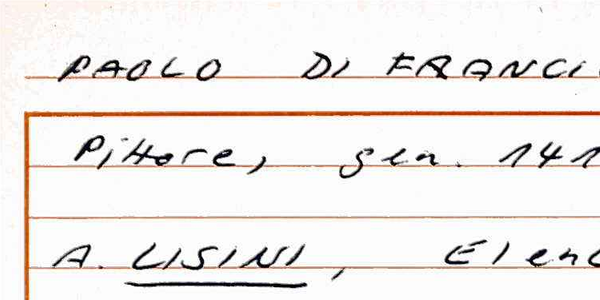 PAOLO DI FRANCI
Pittore, gen. 141
A. LISINI, Elenc